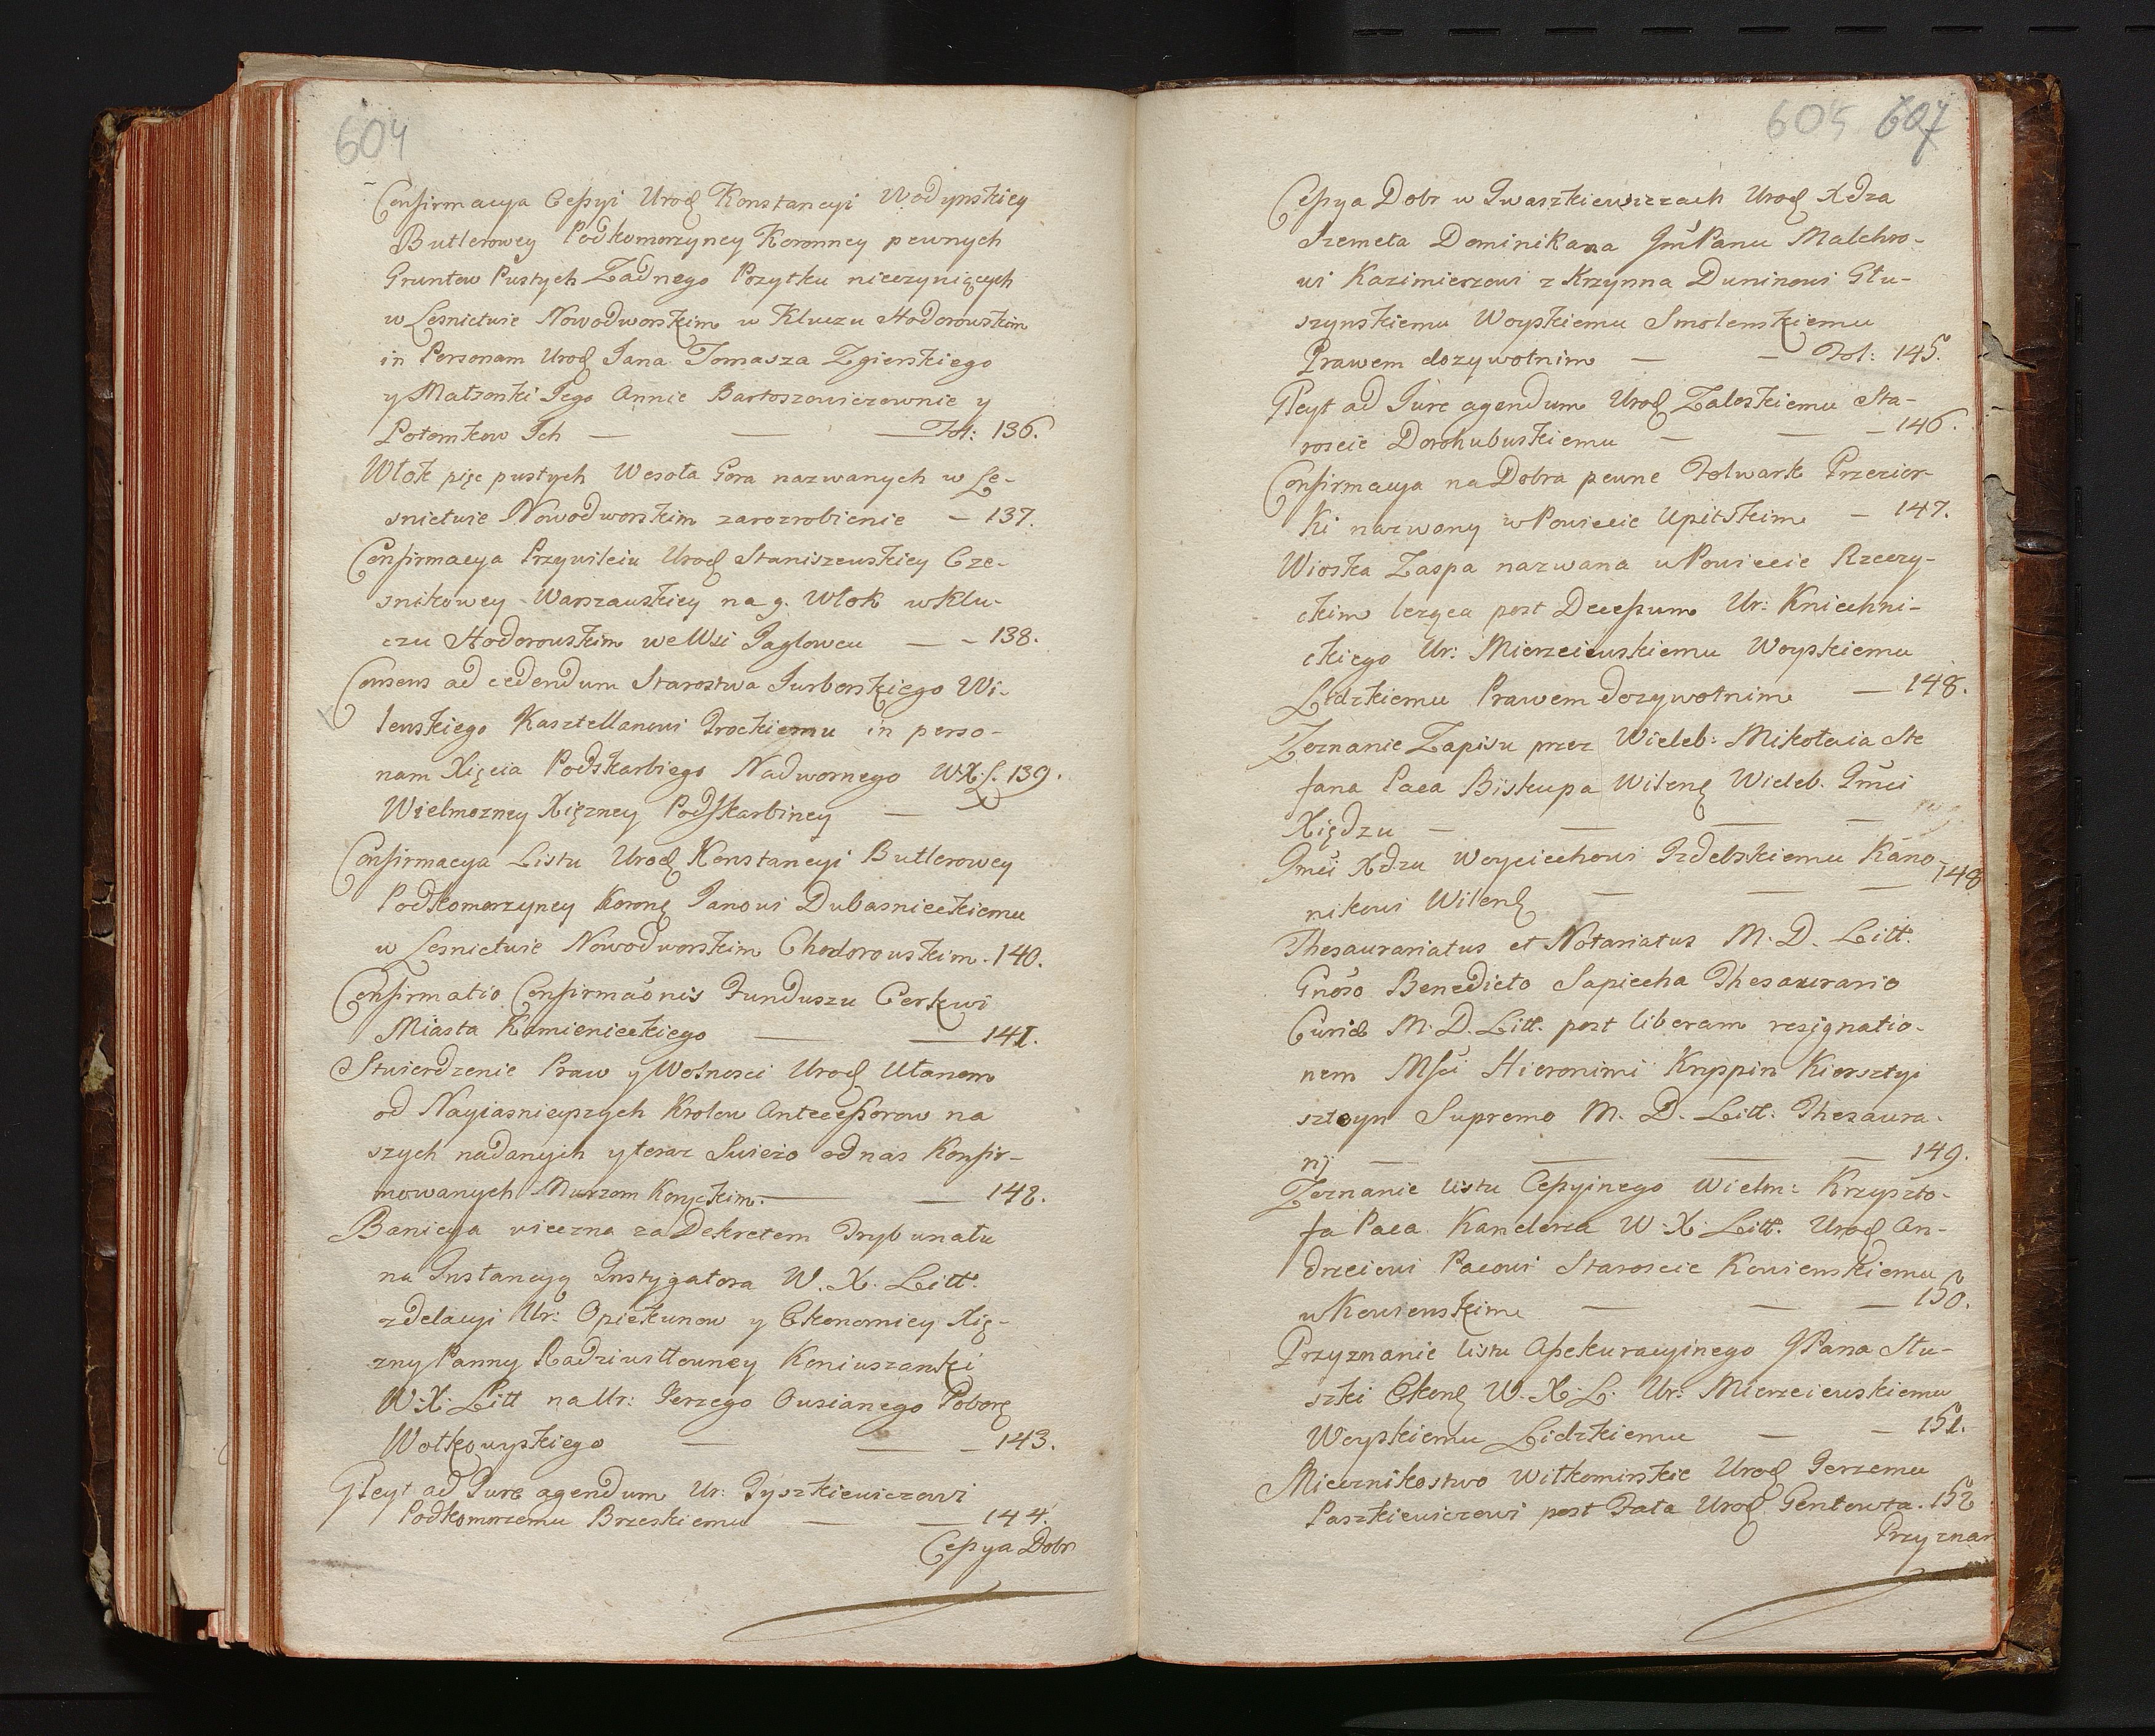 604
Confirmacya Cessyi Urod Konstancyi Wodynskiey
Butlerowey Podkomorzyney Koronney pewnych
Gruntow Pustych Zadnego Pozytku nieczyniących
w Lesnictwie Nowodworskim w Kluczu Hodorowskim
in Personam Urod Jana Tomasza Zgierskiego
y Małzonki Jego Annie Bartoszowiczownie y
Potomkow Ich — — — Fol: 136.
Włok pięc pustych Wesoła Gora nazwanych w Le-
snictwie Nowodworskim zarozrobienie — 137.
Confirmacya Przywileiu Urod Staniszewskiey Cze-
snikowey Warszawskiey na 9. Włok w Klu-
czu Hodorowskim we Wsi Jaglowcu — — 138.
Consens ad cedendum Starostwa Jurborskiego Wi-
lenskiego Kasztellanowi Trockiemu in perso-
nam Xięcia Podskarbiego Nadwornego W.X.L. 139.
Wielmozney Xięzney Podskarbiney —
Confirmacya Listu Urod Konstancyi Butlerowey
Podkomorzyney Koron Janowi Dubasnieckiemu
w Lesnictwie Nowodworskim Chodorowskim. 140.
Confirmatio Confirmaõnis Funduszu Cerkwi
Miasta Kamienieckiego — — 141.
Stwierdzenie Praw y Wolnosci Urod Ułanom
od Nayiasnieyszych Krolow Antecessorow na
szych nadanych y teraz Swiezo od nas Konfir-
mowanych Murzom Koryckim. — — 142.
Banicya wieczna za Dekretem Trybunału
na Instancyą Instygatora W. X. Litt.
zdelacyi Ur: Opiekunow y Ekonomiey Xię-
zny Panny Radziwiłowney Koniuszanki
W. X. Litt na Ur: Jerzego Ousianego Pobor
Wołkowyskiego — — — 143.
Gleyt ad Jure agendum Ur: Tyszkiewiczowi
Podkomorzemu Brzeskiemu — — 144.
Cessya Dobr
605 607
Cessya Dobr w Iwaszkiewiczach Urod Xdza
Szemeta Dominikana Jm̃ Panu Malchro-
wi Kazimierzowi z Krzynna Duninowi Głu-
szynskiemu Woyskiemu Smolenskiemu
Prawem dozywotnim — — Fol: 145.
Gleyt ad Jure agendum Urod Zaleskiemu Sta-
roscie Dorohubuskiemu — — — 146.
Confirmacya na Dobra pewne Folwark Przezior-
ki nazwany w Powiecie Upitskim — 147.
Wioska Zaspa nazwana w Powiecie Rzeczy-
ckim lezęca post Decessum Ur: Kniechni-
ckiego Ur: Mierzeiewskiemu Woyskiemu
Lidzkiemu Prawem dozywotnim — 148.
Zeznanie Zapisu przez Wieleb: Mikołaia Ste
fana Paca Biskupa Wilen Wieleb. Jmci
Xiędzu — — — —
Jmci Xdzu Woyciechowi Izdebskiemu Kano-
nikowi Wilen — — — 148
Thesaurariatus et Notariatus M. D. Litt.
Gnõso Benedicto Sapiecha Thesaurario
Curiæ M. D. Litt. post liberam resignatio-
nem Msci Hieronimi Kryspin Kiersztyi
szteyn Supremo M. D. Litt: Thesaura-
rij — — — — 149.
Zeznanie listu Cessyinego Wielm: Krzyszto-
fa Paca Kanclerza W. X. Litt. Urod An-
drzeiowi Pacowi Staroscie Kowienskiemu
w Kowienskim — — — 150.
Przyznanie listu Assekuracyinego JPana Słu-
szki Ekon W. X. L. Ur: Mierzeiewskiemu
Woyskiemu Lidzkiemu — — 151.
Miecznikostwo Wiłkomirskie Urod Jerzemu
Paszkiewiczowi post Fata Urod Gentowta. 152
Przyznan